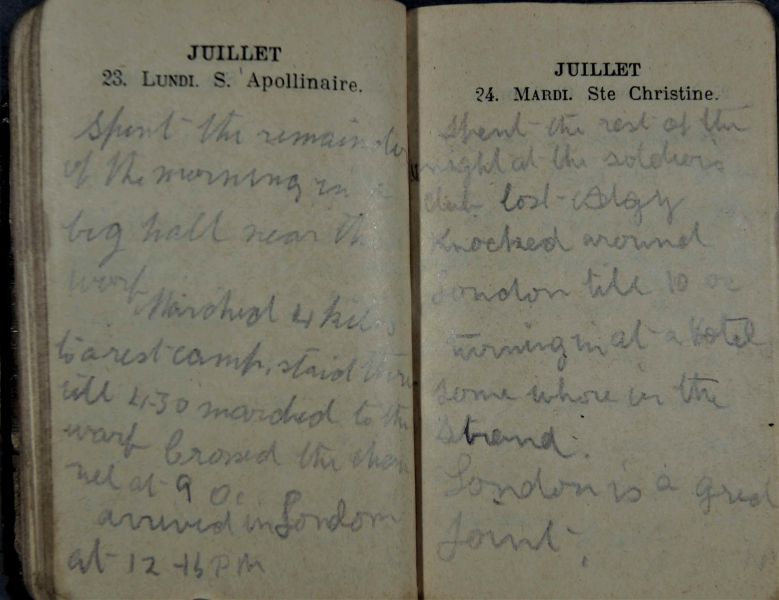 JUILLET
23. LUNDI. S. Apollinaire.
Spent the remainder
of the morning in a
big hall near the
warf
Marched 4 kilos
to a rest camp, staid there
till 4-30 marched to the
warf Crossed the chan
nel at 9 Oc.
arrived in London
at 12-15 PM
JUILLET
24. MARDI. Ste Christine.
Spent the rest of the
night at the soldiers
club lost
Knocked around
London till 10 oc
turning in at a Hotel
some whore in the
Strand.
London is a great
Joint.